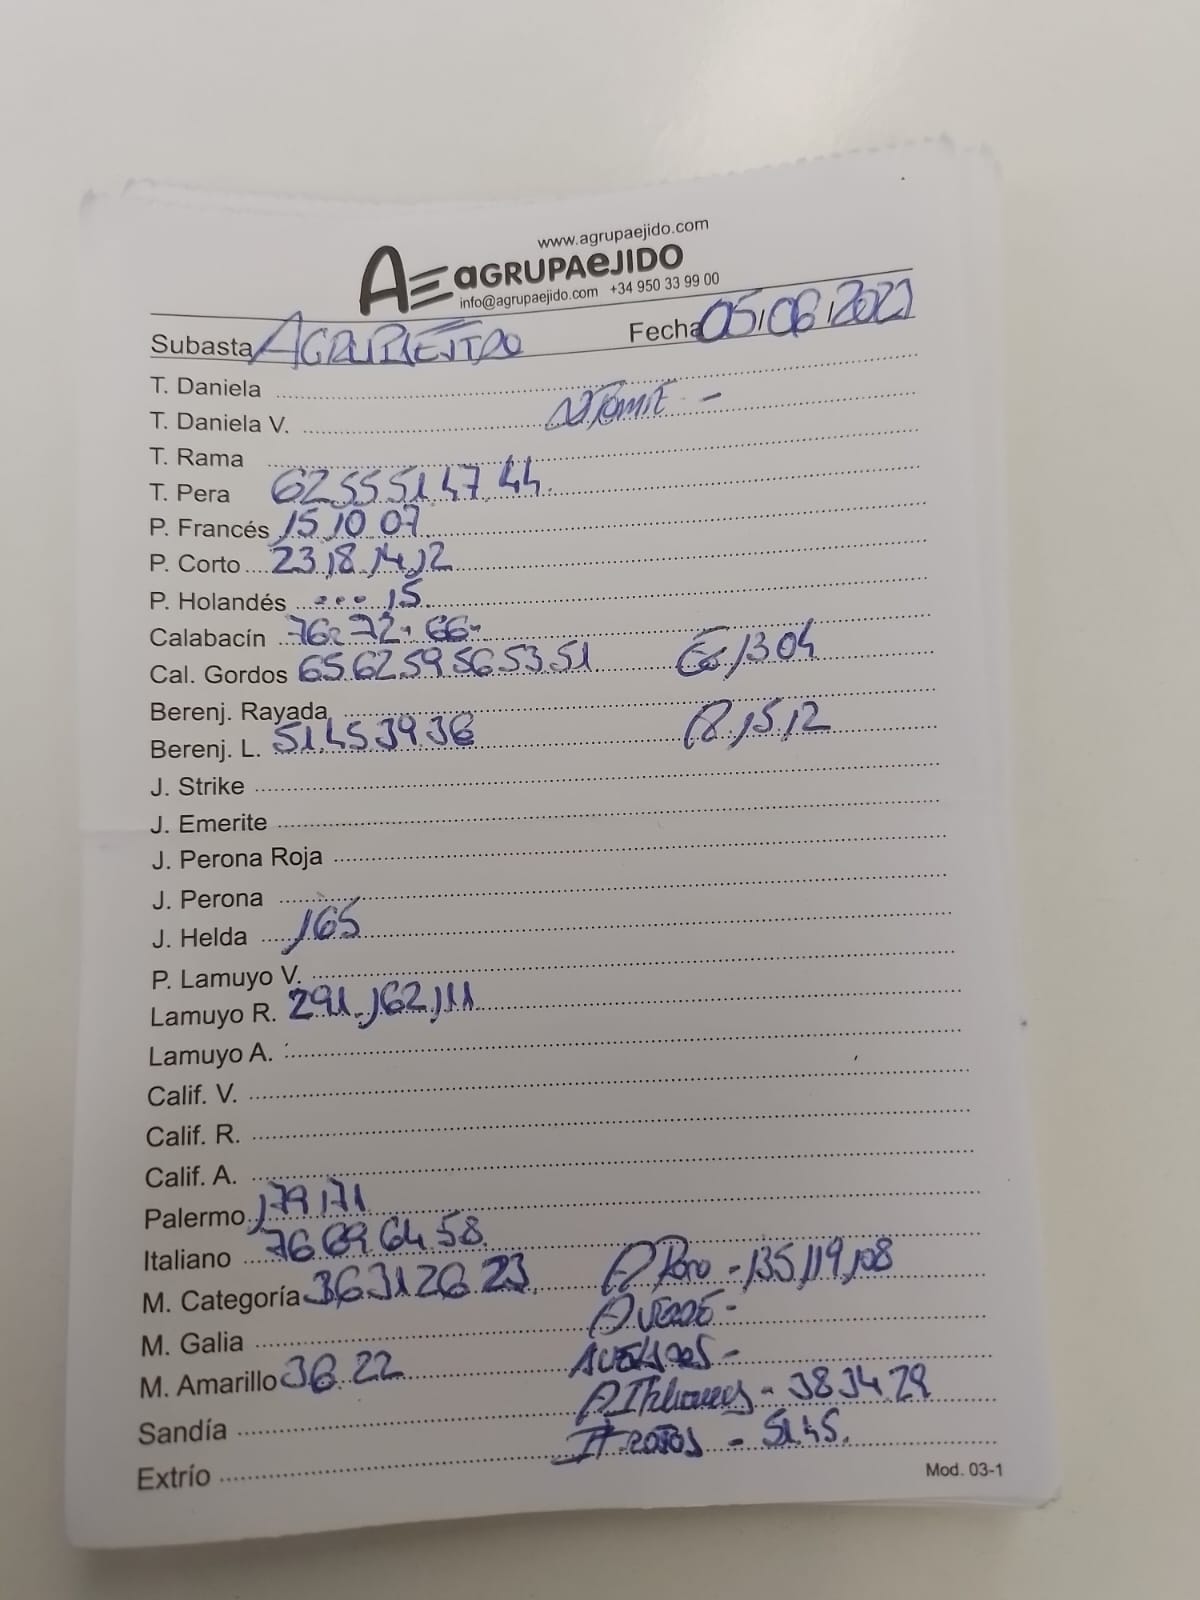 www.agrupaejido.com
AE aGRUPAeJIDO
info@agrupaejido.com +34 950 33 99 00
Subasta AGRUPAEJIDO Fecha 05,06,2021
T. Daniela
T. Daniela V.
T. Rama
T. Pera 62 55 51 47 44.
P. Francés 15 10 07
P. Corto 23 18 14 12
P. Holandés ... 15
Calabacín 76- 72- 66-
Cal. Gordos 65 62 59 56 53 51 Es 13 04
Berenj. Rayada
Berenj. L. 51 45 39 36 R 15 12
J. Strike
J. Emerite
J. Perona Roja
J. Perona
J. Helda 165
P. Lamuyo V.
Lamuyo R. 291 162 111
Lamuyo A.
Calif. V.
Calif. R.
Calif. A.
Palermo 179 171
Italiano 76 69 64 58
M. Categoría 36 31 26 23 - 135 119 108
M. Galia
M. Amarillo 36 22
- 38 34 29
Sandía
It rojos - 51 45.
Extrío
Mod. 03-1